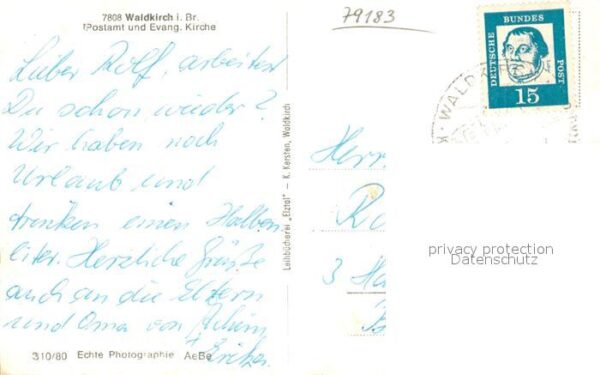 7808 Waldkirch i. Br.
Postamt und Evang. Kirche
79183
DEUTSCHE BUNDES POST
15
WALDK
Lieber Rolf, arbeitest
Du schon wieder?
Wir haben noch
Urlaub und
trinken einen Halben
liter. Herzliche Grüße
auch an die Eltern
und Oma von Achim
Erika.
Leihbücherei „Elztal" — K. Kersten, Waldkirch
Herr
Ro
3 Ha
privacy protection
Datenschutz
310/80 Echte Photographie AeBe